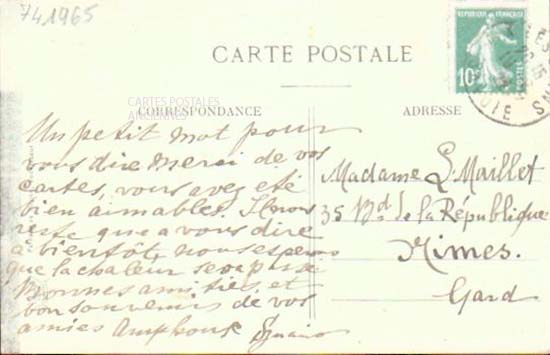 741965
CARTE POSTALE
REPUBLIQUE FRANÇAISE
10c
POSTES
CARTES POSTALES
ANCIENNES
CORRESPONDANCE
ADRESSE
Un petit mot pour
vous dire merci de vos
cartes, vous avez été
bien aimables. Il nous
reste que a vous dire
à bientôt, nous esperons
que la chaleur sera
Bonnes amitiés, et
bon souvenirs de vos
amies
Madame L. Maillet
35 Bd de la République
Nimes.
Gard